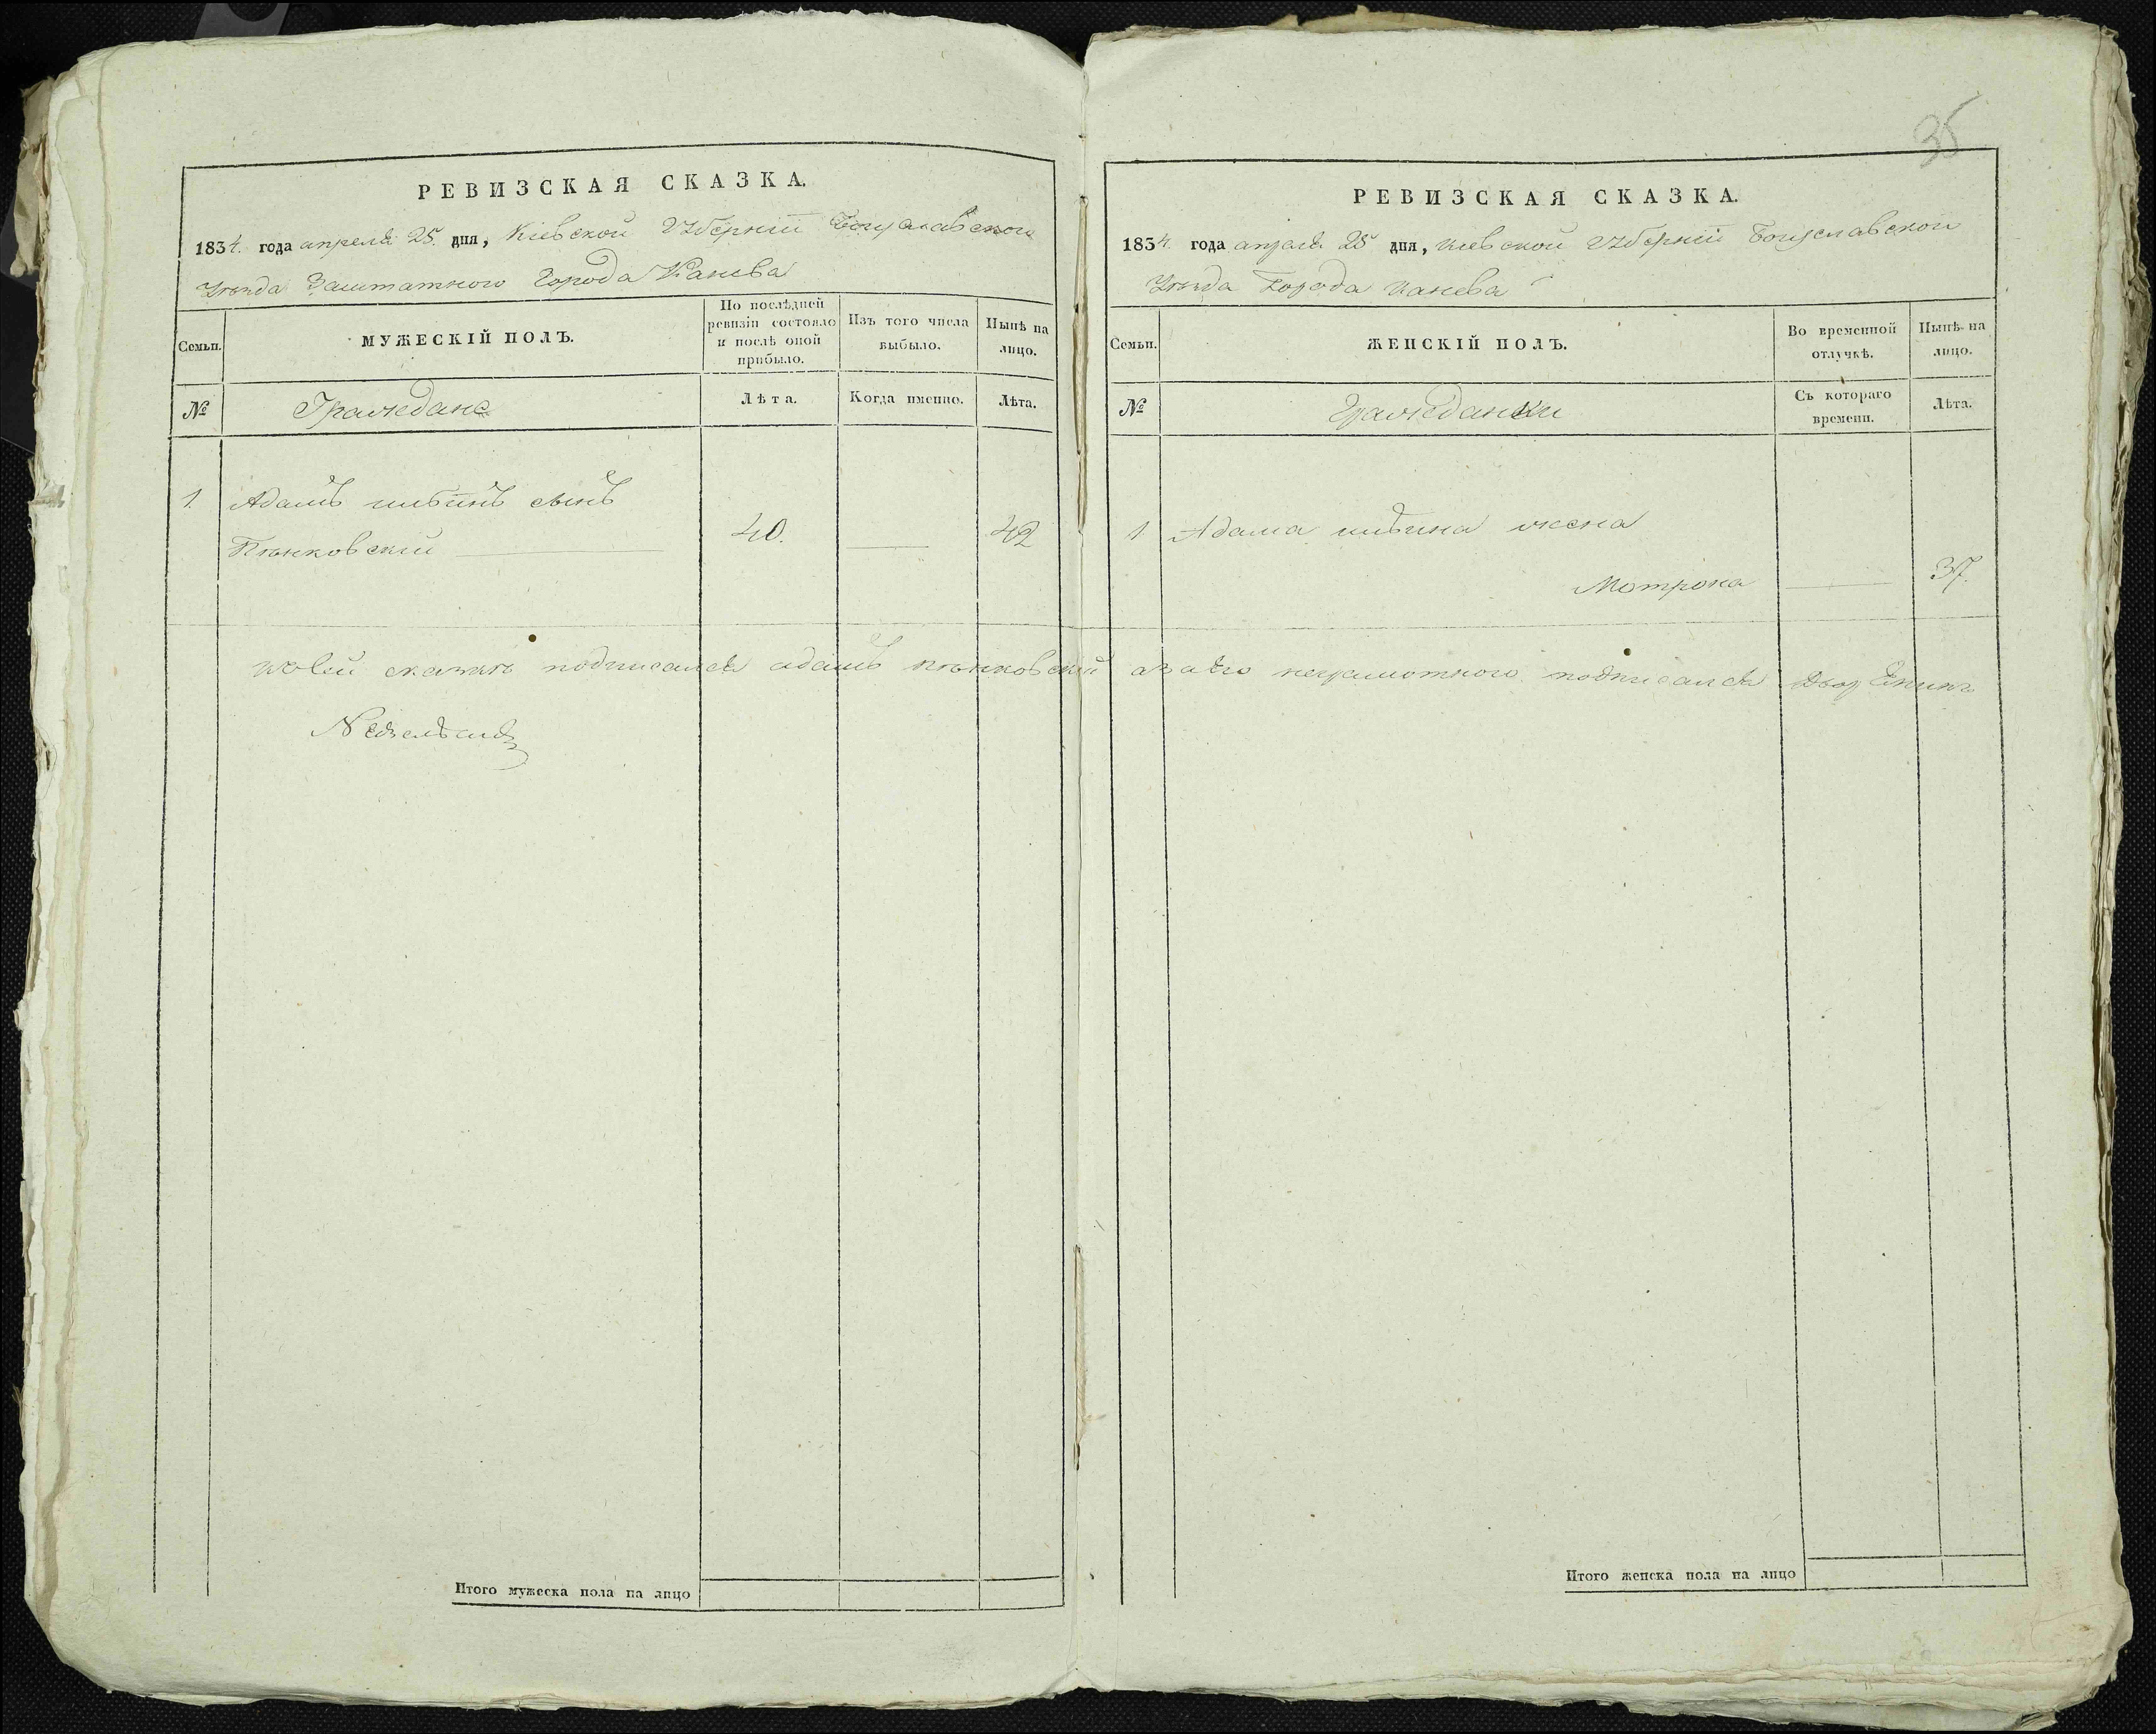 РЕВИЗСКАЯ СКАЗКА.
1834. года апреля 25. дня, Кіевской Губерніи Богуславского
Уѣзда Заштатного Города Канева
Семьи.
МУЖЕСКІЙ ПОЛЪ.
По послѣдней ревизіи состояло и послѣ оной прибыло.
Изъ того числа выбыло.
Нынѣ на лицо.
№
Граждане
Лѣта.
Когда именно.
Лѣта.
1. Адамъ сынъ
Пѣнковскій 40. 42
подписался адамъ пѣнковскій
Итого мужеска пола на лицо
35
РЕВИЗСКАЯ СКАЗКА.
1834. года апреля 25 дня, Кіевской Губерніи Богуславской
Уѣзда Города Канева
Семьи.
ЖЕНСКІЙ ПОЛЪ.
Во временной отлучкѣ.
Нынѣ на лицо.
№
Гражданки
Съ котораго времени.
Лѣта.
1 Адама жена
Мотрона 37.
неграмотного подписался
Итого женска пола на лицо